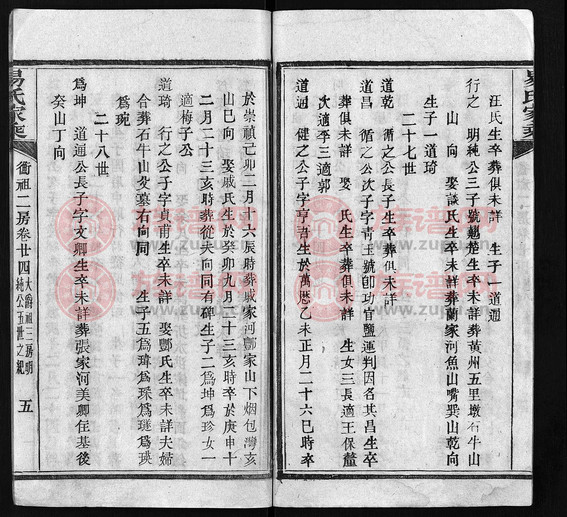 汪氏生卒葬俱未詳 生子一道通
行之 明純公三子號翹楚生卒未詳葬黃州五里墩石牛山
山 向 娶談氏生卒未詳葬蘭家河魚山嘴巽山乾向
生子一道琦
二十七世
道乾 循之公長子生卒葬俱未詳
道昌 循之公次子字青玉號卽功官鹽運判因名其昌生卒
葬俱未詳 娶 氏生卒葬俱未詳 生女三長適王保釐
次適李三適郭
道通 健之公子字亨吾生於萬歷乙未正月二十六巳時卒
於崇禎己卯二月十六辰時葬戚家河鄷家山下烟包灣亥
山巳向 娶戚氏生於癸卯九月二十三亥時卒於庚申十
二月二十三亥時葬從夫向同有碑生子二為坤為珍女一
適梅子公
道琦 行之公子字貞甫生卒未詳 娶鄷氏生卒未詳夫婦
合葬石牛山父墓右向同 生子五為瑋為琛為璲為瑛
為琬
二十八世
為坤 道通公長子字文卿生卒未詳葬張家河美卿住基後
癸山丁向
易氏家乘
衝祖二房卷廿四
五
易氏家乘